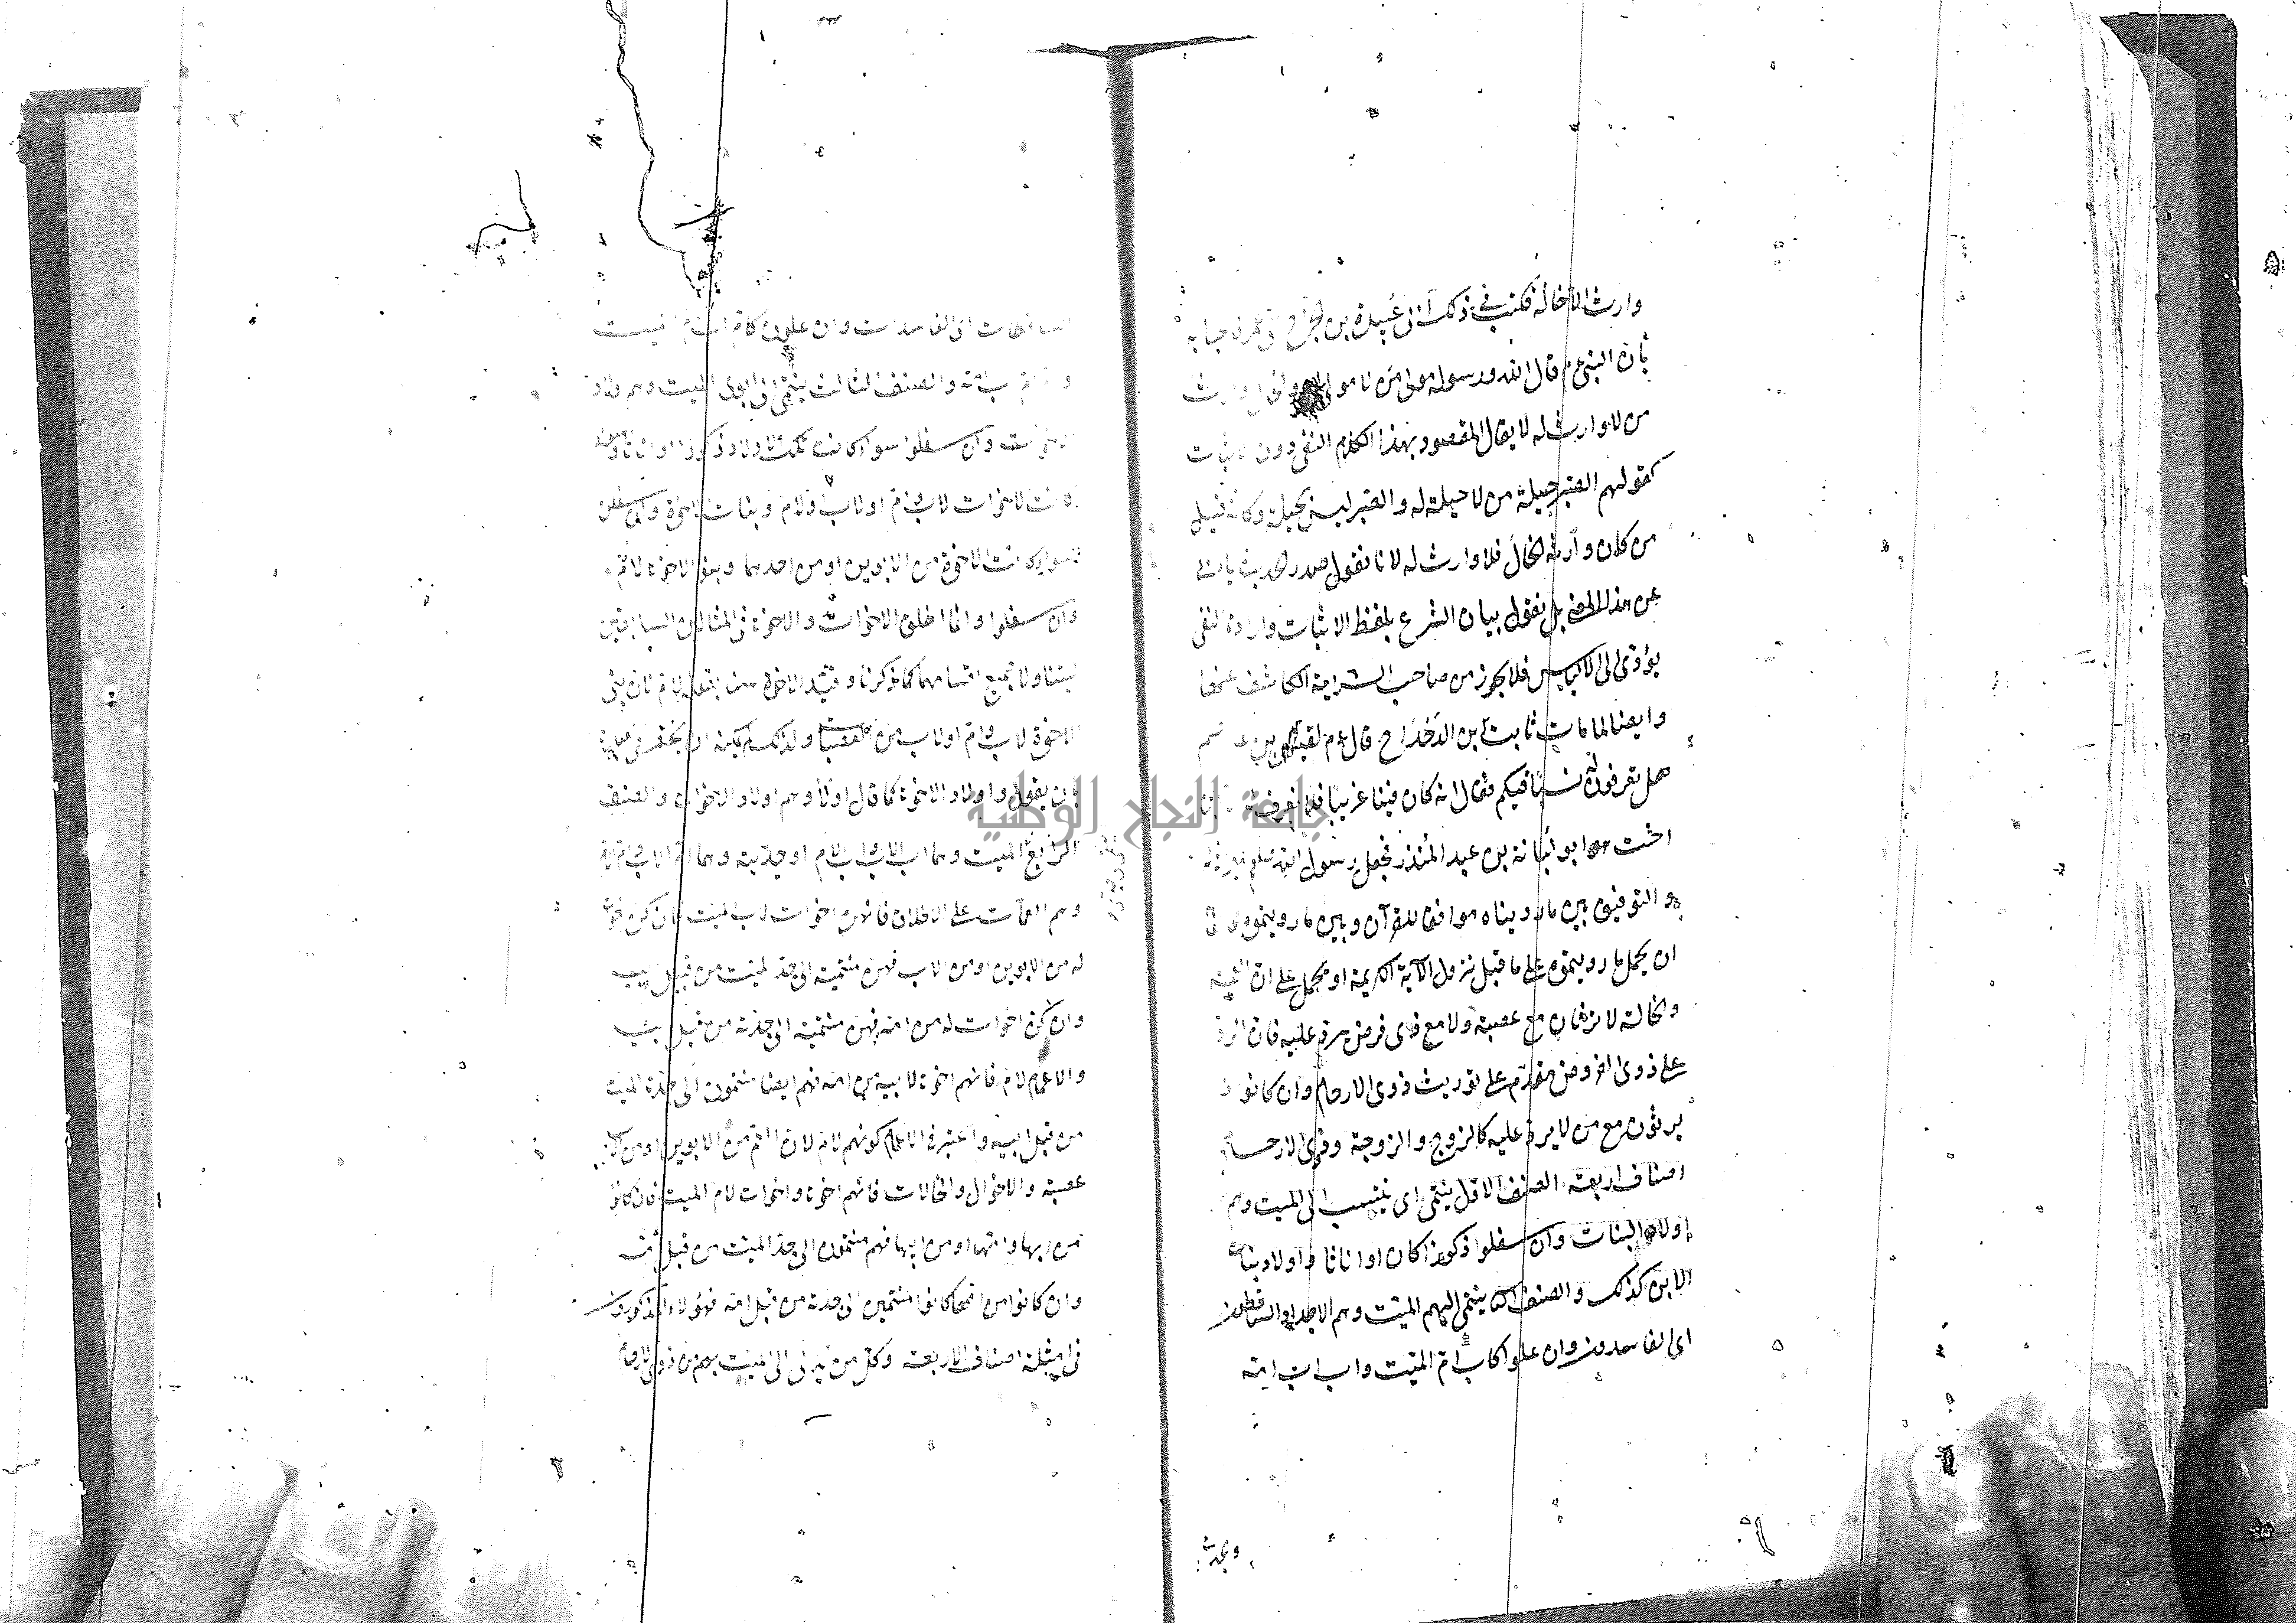 وارث الا خاله فكتب في ذلك ابى عبيدة بن الجراح الى عمر فاجابه
بان النبي عم قال الله ورسوله مولى من لا مولى له والخال وارث
من لا وارث له لا يقال المقصود بهذا الكلام النفى دون الاثبات
كقولهم الصبر حيلة من لا حيلة له والصبر ليس بحيلة وكانه قيل
من كان وارثه الخال فلا وارث له لانا نقول صدر الحديث يابى
عن هذا المعنى بل نقول بيان الشرع بلفظ الاثبات وارادة النفى
يؤدى الى الالباس فلا يجوز من صاحب الشريعة الكاشف عنها
وايضا لما مات ثابت بن الدحداح قال عم لقيس بن عاصم
هل تعرفون له نسبا فيكم فقال انه كان فينا غريبا فلا نعرف له الا ابن
اخت هو ابو لبابة بن عبد المنذر فجعل رسول الله صلعم ميراثه له
والتوفيق بين ما رويناه موافقا للقرآن وبين ما رويتموه
ان يحمل ما رويتموه على ما قبل نزول الآية الكريمة او يحمل على ان العمة
والخالة لا ترثان مع عصبة ولا مع ذى فرض يرد عليه فان الرد
على ذوى الفروض مقدم على توريث ذوى الارحام وان كانوا
يرثون مع من لا يرد عليه كالزوج والزوجة وذوى الارحام
اصناف اربعة الصنف الاول ينتمى اى ينتسب الى الميت وهم
اولاد البنات وان سفلوا ذكورا كان او اناثا واولاد بنات
الابن كذلك والصنف الثانى ينتمى اليهم الميت وهم الاجداد الساقطون
اى الفاسدون وان علوا كاب ام الميت واب اب امه
وجدت
الساقطات اى الفاسدات وان علون كام اب ام الميت
وام ام اب امه والصنف الثالث ينتمى الى ابوى الميت وهم اولاد
الاخوات وان سفلوا سواء كانت تلك الاولاد ذكورا او اناثا وسواء
كانت الاخوات لاب وام او لاب او لام وبنات الاخوة وان سفلن
سواء كانت الاخوة من الابوين او من احدهما وبنو الاخوة لام
وان سفلوا وانما اطلق الاخوات والاخوة فى المثالين السابقين
ليتناولا جميع اقسامهما كما ذكرنا وقيد الاخوة هنا بقوله لام لان بنى
الاخوة لاب وام او لاب من العصبات ولذلك لم يكنه ان يختصر فى العبارة
بان يقول واولاد الاخوة كما قال اولا وهم اولاد الاخوات والصنف
الرابع الميت وهما اب الاب واب الام او جدتيه وهما ام الاب وام الام
وهم العمات على الاطلاق فانهن اخوات لاب الميت فان كن اخوات
له من الابوين او من الاب فهن منتمية الى جد الميت من قبل ابيه
وان كن اخوات له من امه فهن منتمية الى جدته من قبل ابيه
والاعمام لام فانهم اخوة لابيه من امه فهم ايضا منتمون الى جدة الميت
من قبل ابيه واعتبر فى الاعمام كونهم لام لان العم من الابوين او من الاب
عصبة والاخوال والخالات فانهم اخوة واخوات لام الميت فان كانوا
من ابيها وامها او من ابيها فهم منتمون الى جد الميت من قبل امه
وان كانوا من امها كانوا منتمين الى جدته من قبل امه فهؤلاء المذكورون
فى امثلة اصناف الاربعة وكل من يدلى الى الميت بهم من ذوى الارحام
جامعة النجاح الوطنية